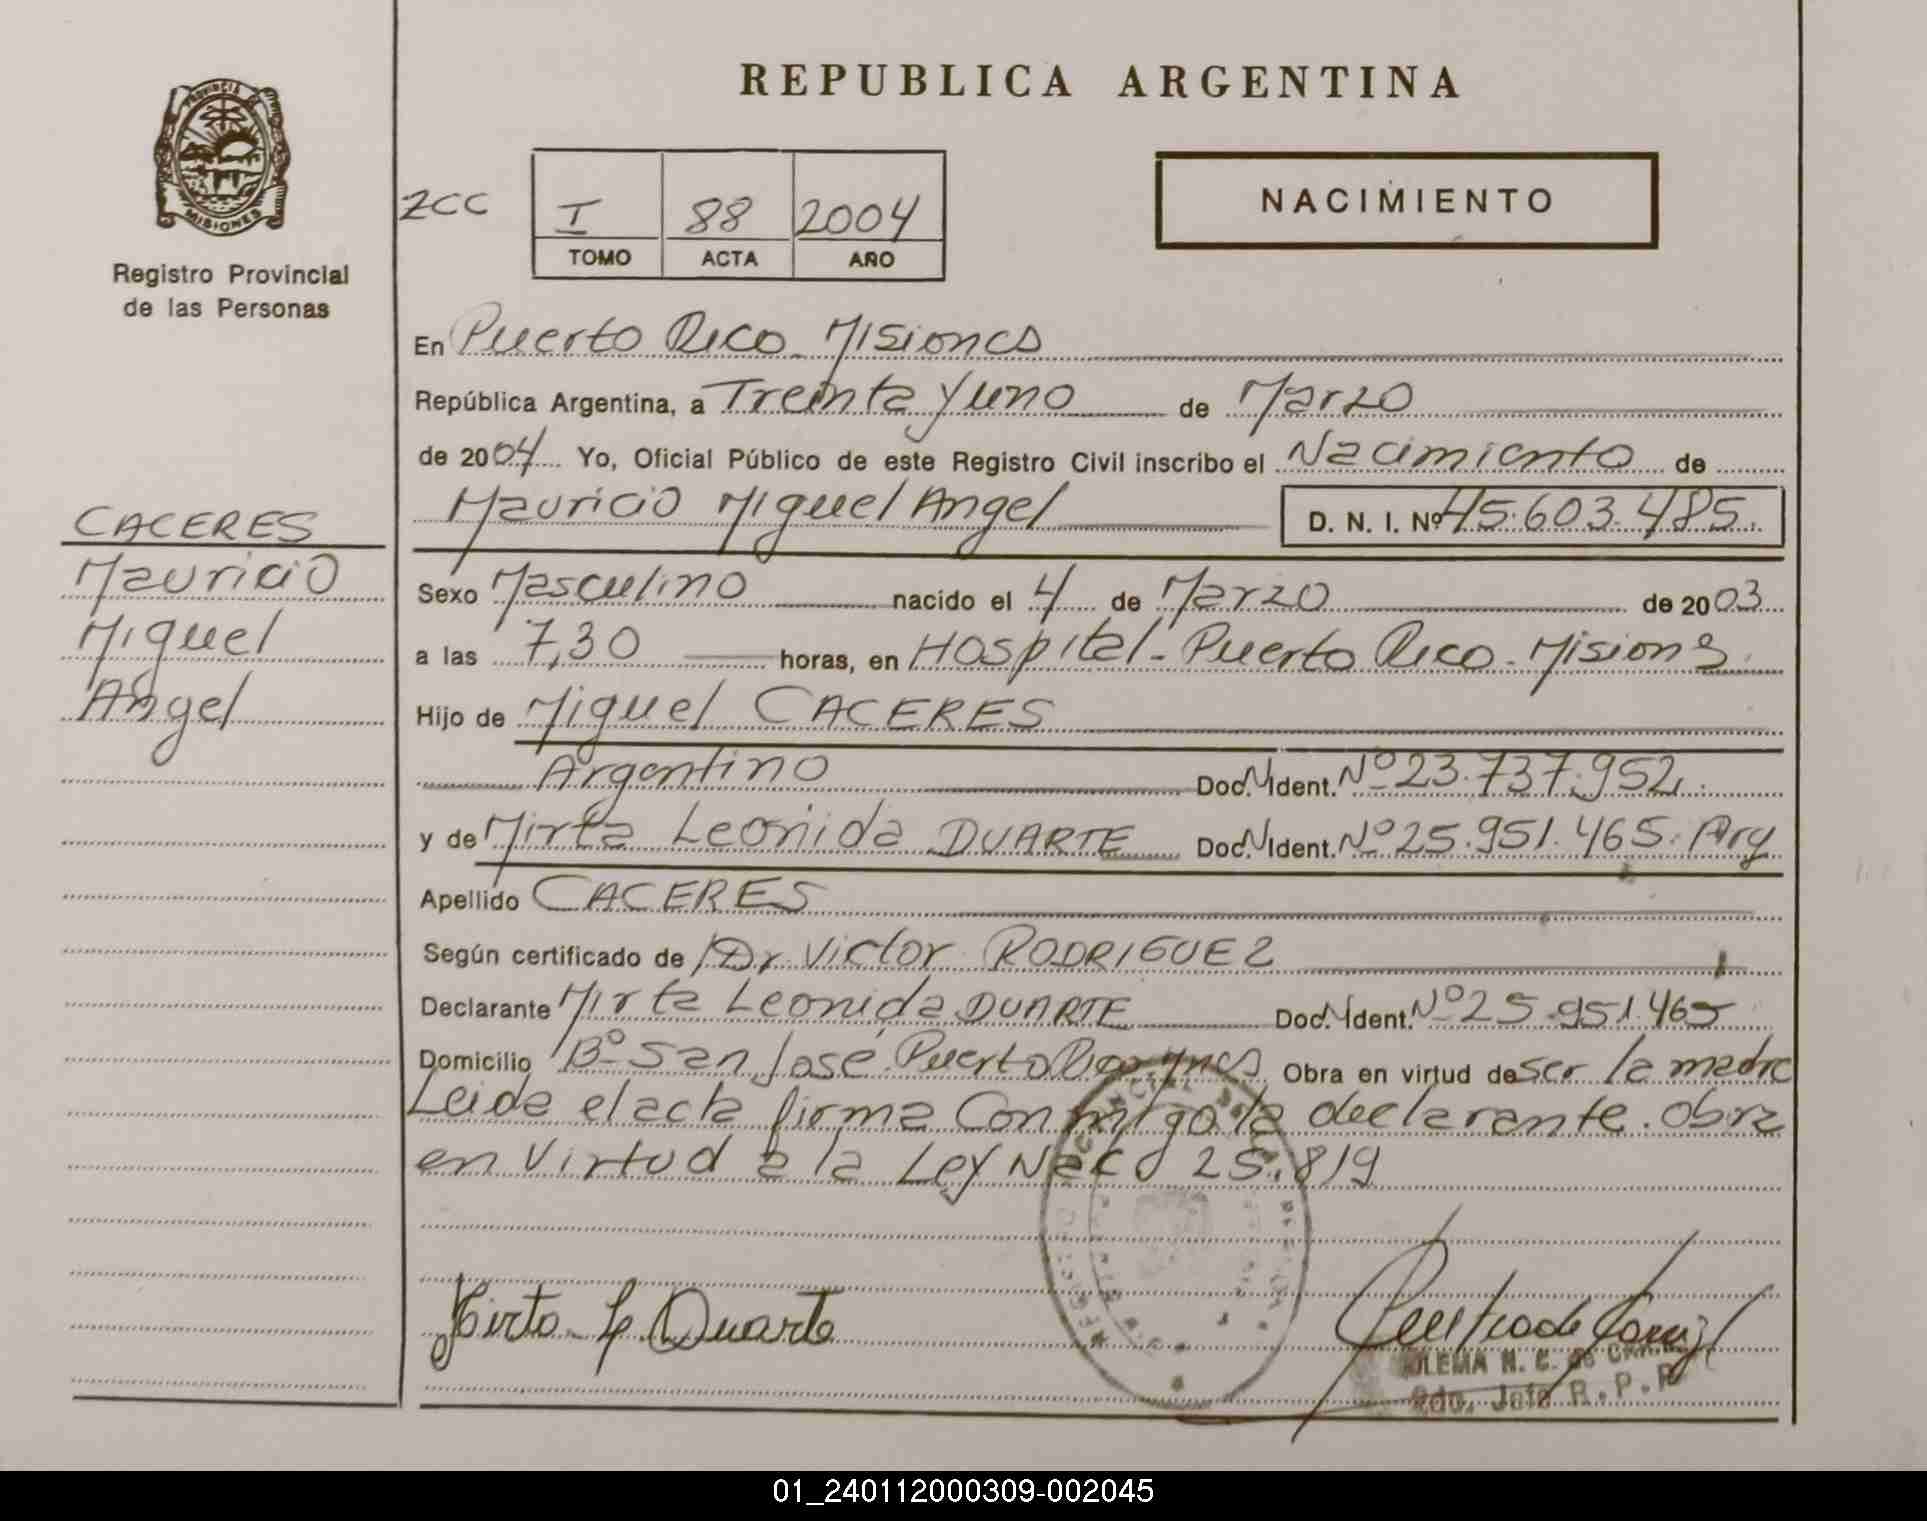 REPUBLICA ARGENTINA
PROVINCIA DE
MISIONES
Registro Provincial
de las Personas
ZCC
I 88 2004
TOMO ACTA AÑO
NACIMIENTO
En Puerto Rico. Misiones
República Argentina, a Treinta y uno de Marzo
de 2004 Yo, Oficial Público de este Registro Civil inscribo el Nacimiento de
Mauricio Miguel Angel D. N. I. Nº 45.603.485.
CACERES
Mauricio
Miguel
Angel
Sexo Masculino nacido el 4 de Marzo de 2003
a las 7,30 horas, en Hospital - Puerto Rico - Misiones
Hijo de Miguel CACERES
Argentino Doc. N. Ident. Nº 23.737.952.
y de Mirta Leonida DUARTE Doc. N. Ident. Nº 25.951.465. Arg
Apellido CACERES
Según certificado de Dr. Victor RODRIGUEZ
Declarante Mirta Leonida DUARTE Doc. N. Ident. Nº 25.951.465
Domicilio Bº San José. Puerto Rico Mnes Obra en virtud de ser la madre
Leida el acta firma Conmigo la declarante. Obra
en Virtud a la Ley Nac 25.819
Mirta L Duarte
N. C. de
Jefe R.P.P
01_240112000309-002045